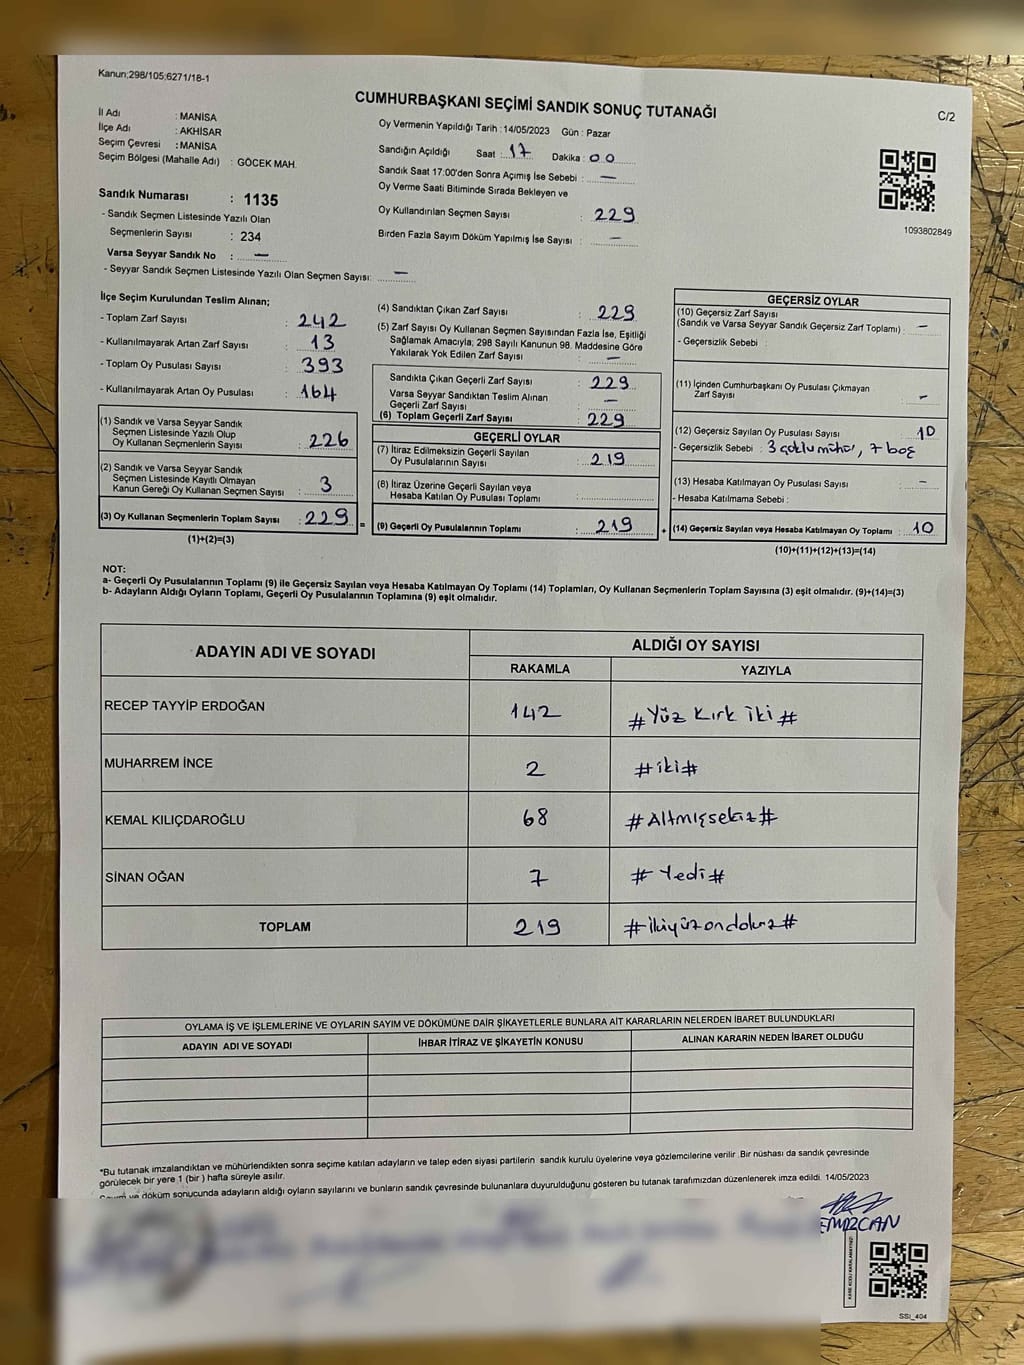 Kanun;298/105;6271/18-1
CUMHURBAŞKANI SEÇİMİ SANDIK SONUÇ TUTANAĞI
C/2
İl Adı : MANİSA
İlçe Adı : AKHİSAR
Seçim Çevresi : MANİSA
Seçim Bölgesi (Mahalle Adı) : GÖCEK MAH.
Oy Vermenin Yapıldığı Tarih : 14/05/2023 Gün : Pazar
Sandığın Açıldığı Saat : 17 Dakika : 00
Sandık Saat 17:00'den Sonra Açımış İse Sebebi : —
Oy Verme Saati Bitiminde Sırada Bekleyen ve
Oy Kullandırılan Seçmen Sayısı : 229
Birden Fazla Sayım Döküm Yapılmış İse Sayısı : —
1093802849
Sandık Numarası : 1135
- Sandık Seçmen Listesinde Yazılı Olan
Seçmenlerin Sayısı : 234
Varsa Seyyar Sandık No : —
- Seyyar Sandık Seçmen Listesinde Yazılı Olan Seçmen Sayısı: —
İlçe Seçim Kurulundan Teslim Alınan;
- Toplam Zarf Sayısı : 242
- Kullanılmayarak Artan Zarf Sayısı : 13
- Toplam Oy Pusulası Sayısı : 393
- Kullanılmayarak Artan Oy Pusulası : 164
(1) Sandık ve Varsa Seyyar Sandık
Seçmen Listesinde Yazılı Olup
Oy Kullanan Seçmenlerin Sayısı : 226
(2) Sandık ve Varsa Seyyar Sandık
Seçmen Listesinde Kayıtlı Olmayan
Kanun Gereği Oy Kullanan Seçmen Sayısı : 3
(3) Oy Kullanan Seçmenlerin Toplam Sayısı : 229 =
(1)+(2)=(3)
(4) Sandıktan Çıkan Zarf Sayısı : 229
(5) Zarf Sayısı Oy Kullanan Seçmen Sayısından Fazla İse, Eşitliği
Sağlamak Amacıyla; 298 Sayılı Kanunun 98. Maddesine Göre
Yakılarak Yok Edilen Zarf Sayısı : —
Sandıkta Çıkan Geçerli Zarf Sayısı : 229
Varsa Seyyar Sandıktan Teslim Alınan
Geçerli Zarf Sayısı : —
(6) Toplam Geçerli Zarf Sayısı : 229
GEÇERLİ OYLAR
(7) İtiraz Edilmeksizin Geçerli Sayılan
Oy Pusulalarının Sayısı : 219
(8) İtiraz Üzerine Geçerli Sayılan veya
Hesaba Katılan Oy Pusulası Toplamı :
(9) Geçerli Oy Pusulalarının Toplamı : 219 +
GEÇERSİZ OYLAR
(10) Geçersiz Zarf Sayısı
(Sandık ve Varsa Seyyar Sandık Geçersiz Zarf Toplamı) : —
- Geçersizlik Sebebi :
(11) İçinden Cumhurbaşkanı Oy Pusulası Çıkmayan
Zarf Sayısı : —
(12) Geçersiz Sayılan Oy Pusulası Sayısı : 10
- Geçersizlik Sebebi : 3 çoklu mühür, 7 boş
(13) Hesaba Katılmayan Oy Pusulası Sayısı : —
- Hesaba Katılmama Sebebi :
(14) Geçersiz Sayılan veya Hesaba Katılmayan Oy Toplamı : 10
(10)+(11)+(12)+(13)=(14)
NOT:
a- Geçerli Oy Pusulalarının Toplamı (9) ile Geçersiz Sayılan veya Hesaba Katılmayan Oy Toplamı (14) Toplamları, Oy Kullanan Seçmenlerin Toplam Sayısına (3) eşit olmalıdır. (9)+(14)=(3)
b- Adayların Aldığı Oyların Toplamı, Geçerli Oy Pusulalarının Toplamına (9) eşit olmalıdır.
ADAYIN ADI VE SOYADI ALDIĞI OY SAYISI
RAKAMLA YAZIYLA
RECEP TAYYİP ERDOĞAN 142 #Yüz Kırk iki#
MUHARREM İNCE 2 #iki#
KEMAL KILIÇDAROĞLU 68 #Altmışsekiz#
SİNAN OĞAN 7 #Yedi#
TOPLAM 219 #ikiyüzondokuz#
OYLAMA İŞ VE İŞLEMLERİNE VE OYLARIN SAYIM VE DÖKÜMÜNE DAİR ŞİKAYETLERLE BUNLARA AİT KARARLARIN NELERDEN İBARET BULUNDUKLARI
ADAYIN ADI VE SOYADI İHBAR İTİRAZ VE ŞİKAYETİN KONUSU ALINAN KARARIN NEDEN İBARET OLDUĞU
*Bu tutanak imzalandıktan ve mühürlendikten sonra seçime katılan adayların ve talep eden siyasi partilerin sandık kurulu üyelerine veya gözlemcilerine verilir .Bir nüshası da sandık çevresinde
görülecek bir yere 1 (bir ) hafta süreyle asılır.
döküm sonucunda adayların aldığı oyların sayılarını ve bunların sandık çevresinde bulunanlara duyurulduğunu gösteren bu tutanak tarafımızdan düzenlenerek imza edildi. 14/05/2023
SSI_404